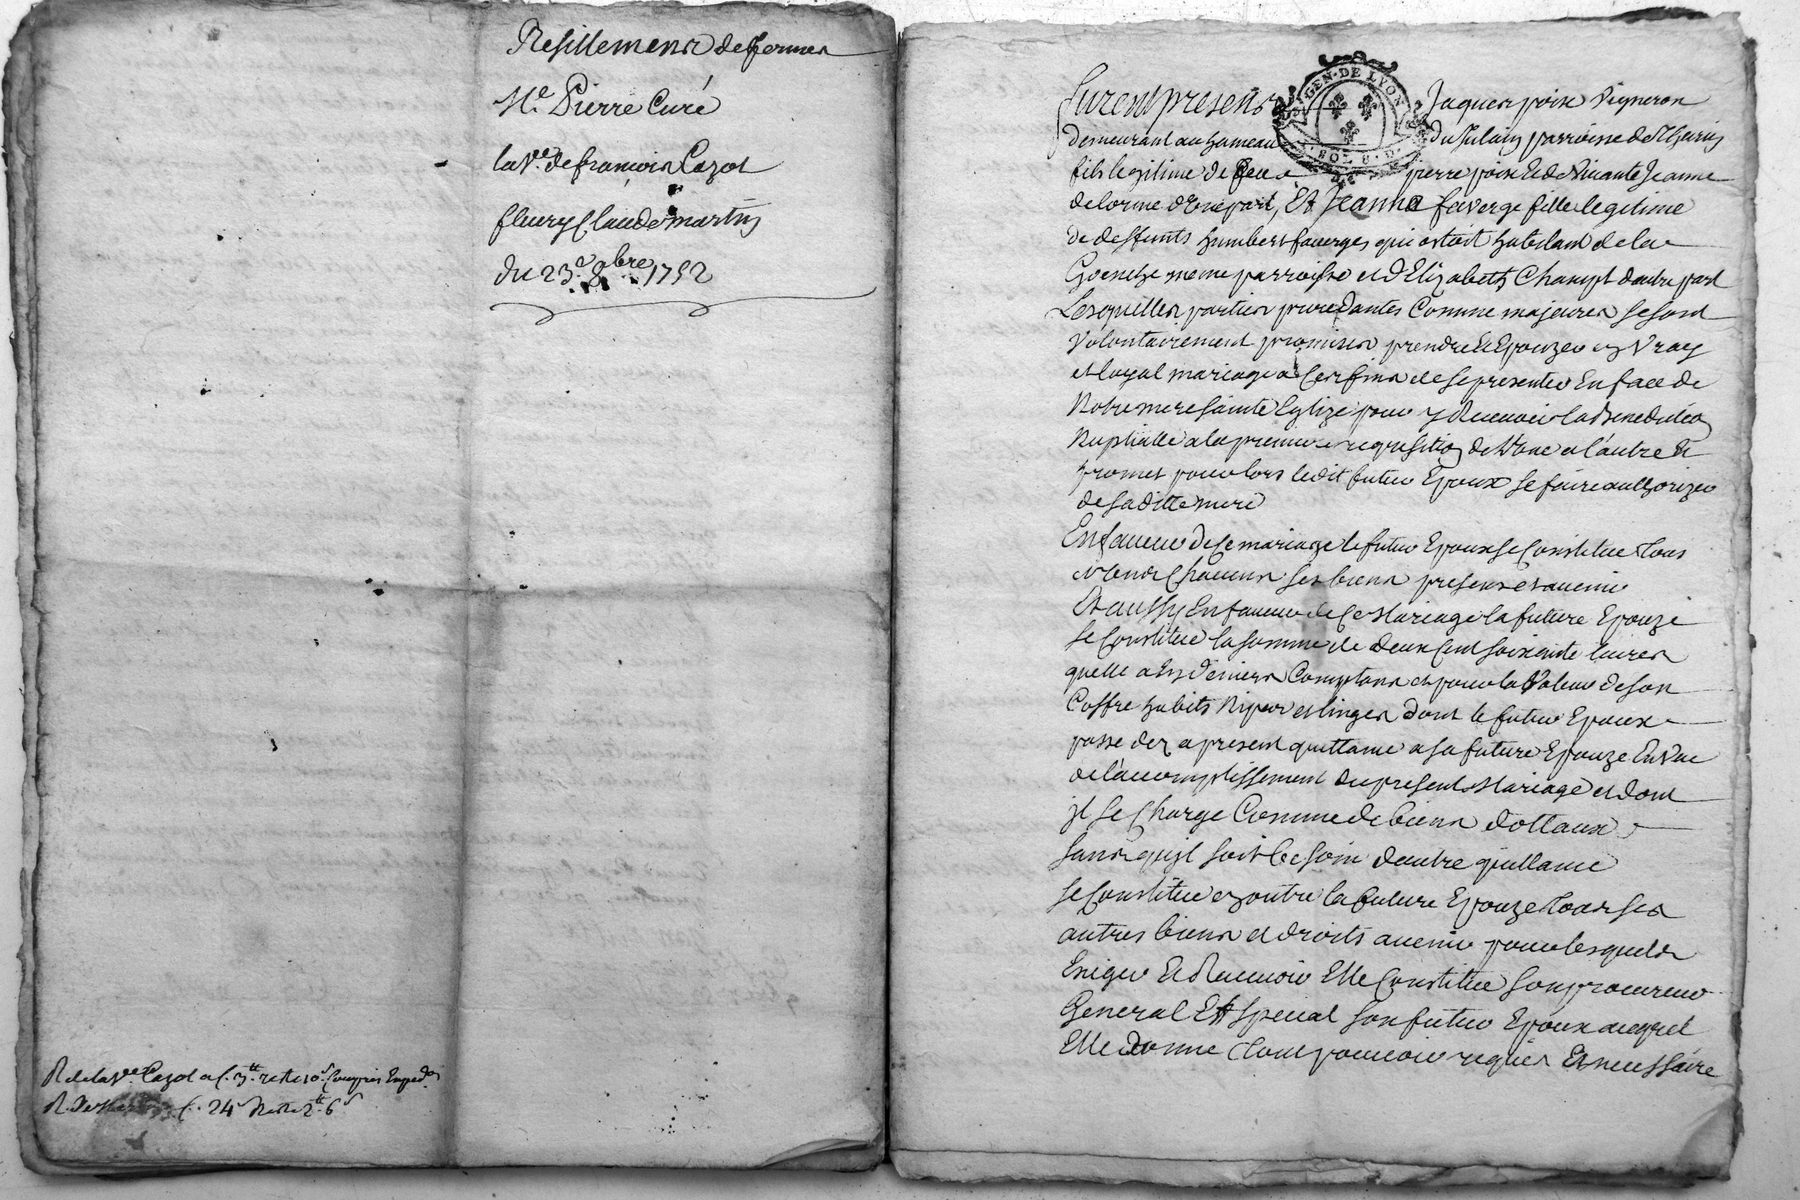 Resillement de fermes
Me. Pierre Curé
la ve. de francois Cazot
fleury Claude martin
du 23e. 8bre 1752
R de la ve Cazot a C. 3tt reste 10s Compris Exped.on
R. C. 24s Reste 2tt. 6s
GEN. DE LYON
SOL
furent presents Jaques poix Vigneron
demeurant au hameau du Julain parroisse de Therins
fils legitime de feu pierre poix et de vivante Jeanne
delorme d'une part, Et Jeanne faverge fille legitime
de deffunts humbert faverges qui estoit habitant de la
Gonethe meme parroisse et d'Elizabeth Champt dautre part
Lesquelles parties procedantes Comme majeures se sont
Volontairement promises prendre et Epouzer en Vray
et loyal mariage a Ces fins de se presenter En face de
Notre mere sainte Eglize pour y Recevoir la Benediction
Nuptialle a la premiere requisition de l'une a l'autre Et
promet pour lors ledit futur Epoux se faire authorizer
de sa ditte mere
En faveur de Ce mariage le futur Epoux se Constitue tous
Et Un Chacuns ses biens presens et avenir
Et aussy En faveur de Ce Mariage la future Epouze
se Constitue la somme de deux Cent soixante livres
quelle a En deniers Comptans et pour la Valeur de son
Coffre habits Nipes et linges dont le futur Epoux
passe dez a present quittance a sa future Epouze En Vue
de l'accomplissement du present Mariage et dont
il se Charge Comme de biens dottaux
sans quil soit besoin dautre quittance
se Constitue en outre la future Epouze tous ses
autres biens et droits avenir pour lesquels
Exiger Et Recevoir Elle Constitue son procureur
General Et special son futur Epoux auquel
Elle donne tout pouvoir requis Et necessaire